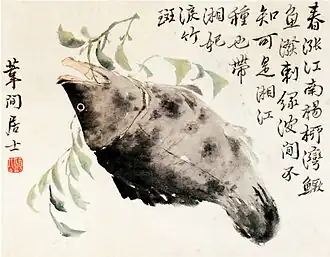 春漲江南楊柳灣鱖
魚潑刺綠波間不
知可是湘江
種也帶
湘妃
淚竹
斑
葦間居士